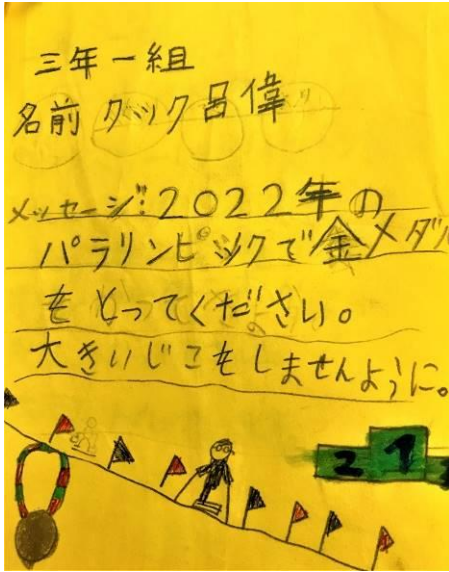 三年一組
名前 クック呂偉
メッセージ:2022年の
パラリンピックで金メダル
をとってください。
大きいじこをしませんように。
2 1